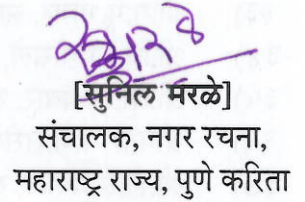 [सुनिल मरळे]
संचालक, नगर रचना,
महाराष्ट्र राज्य, पुणे करिता